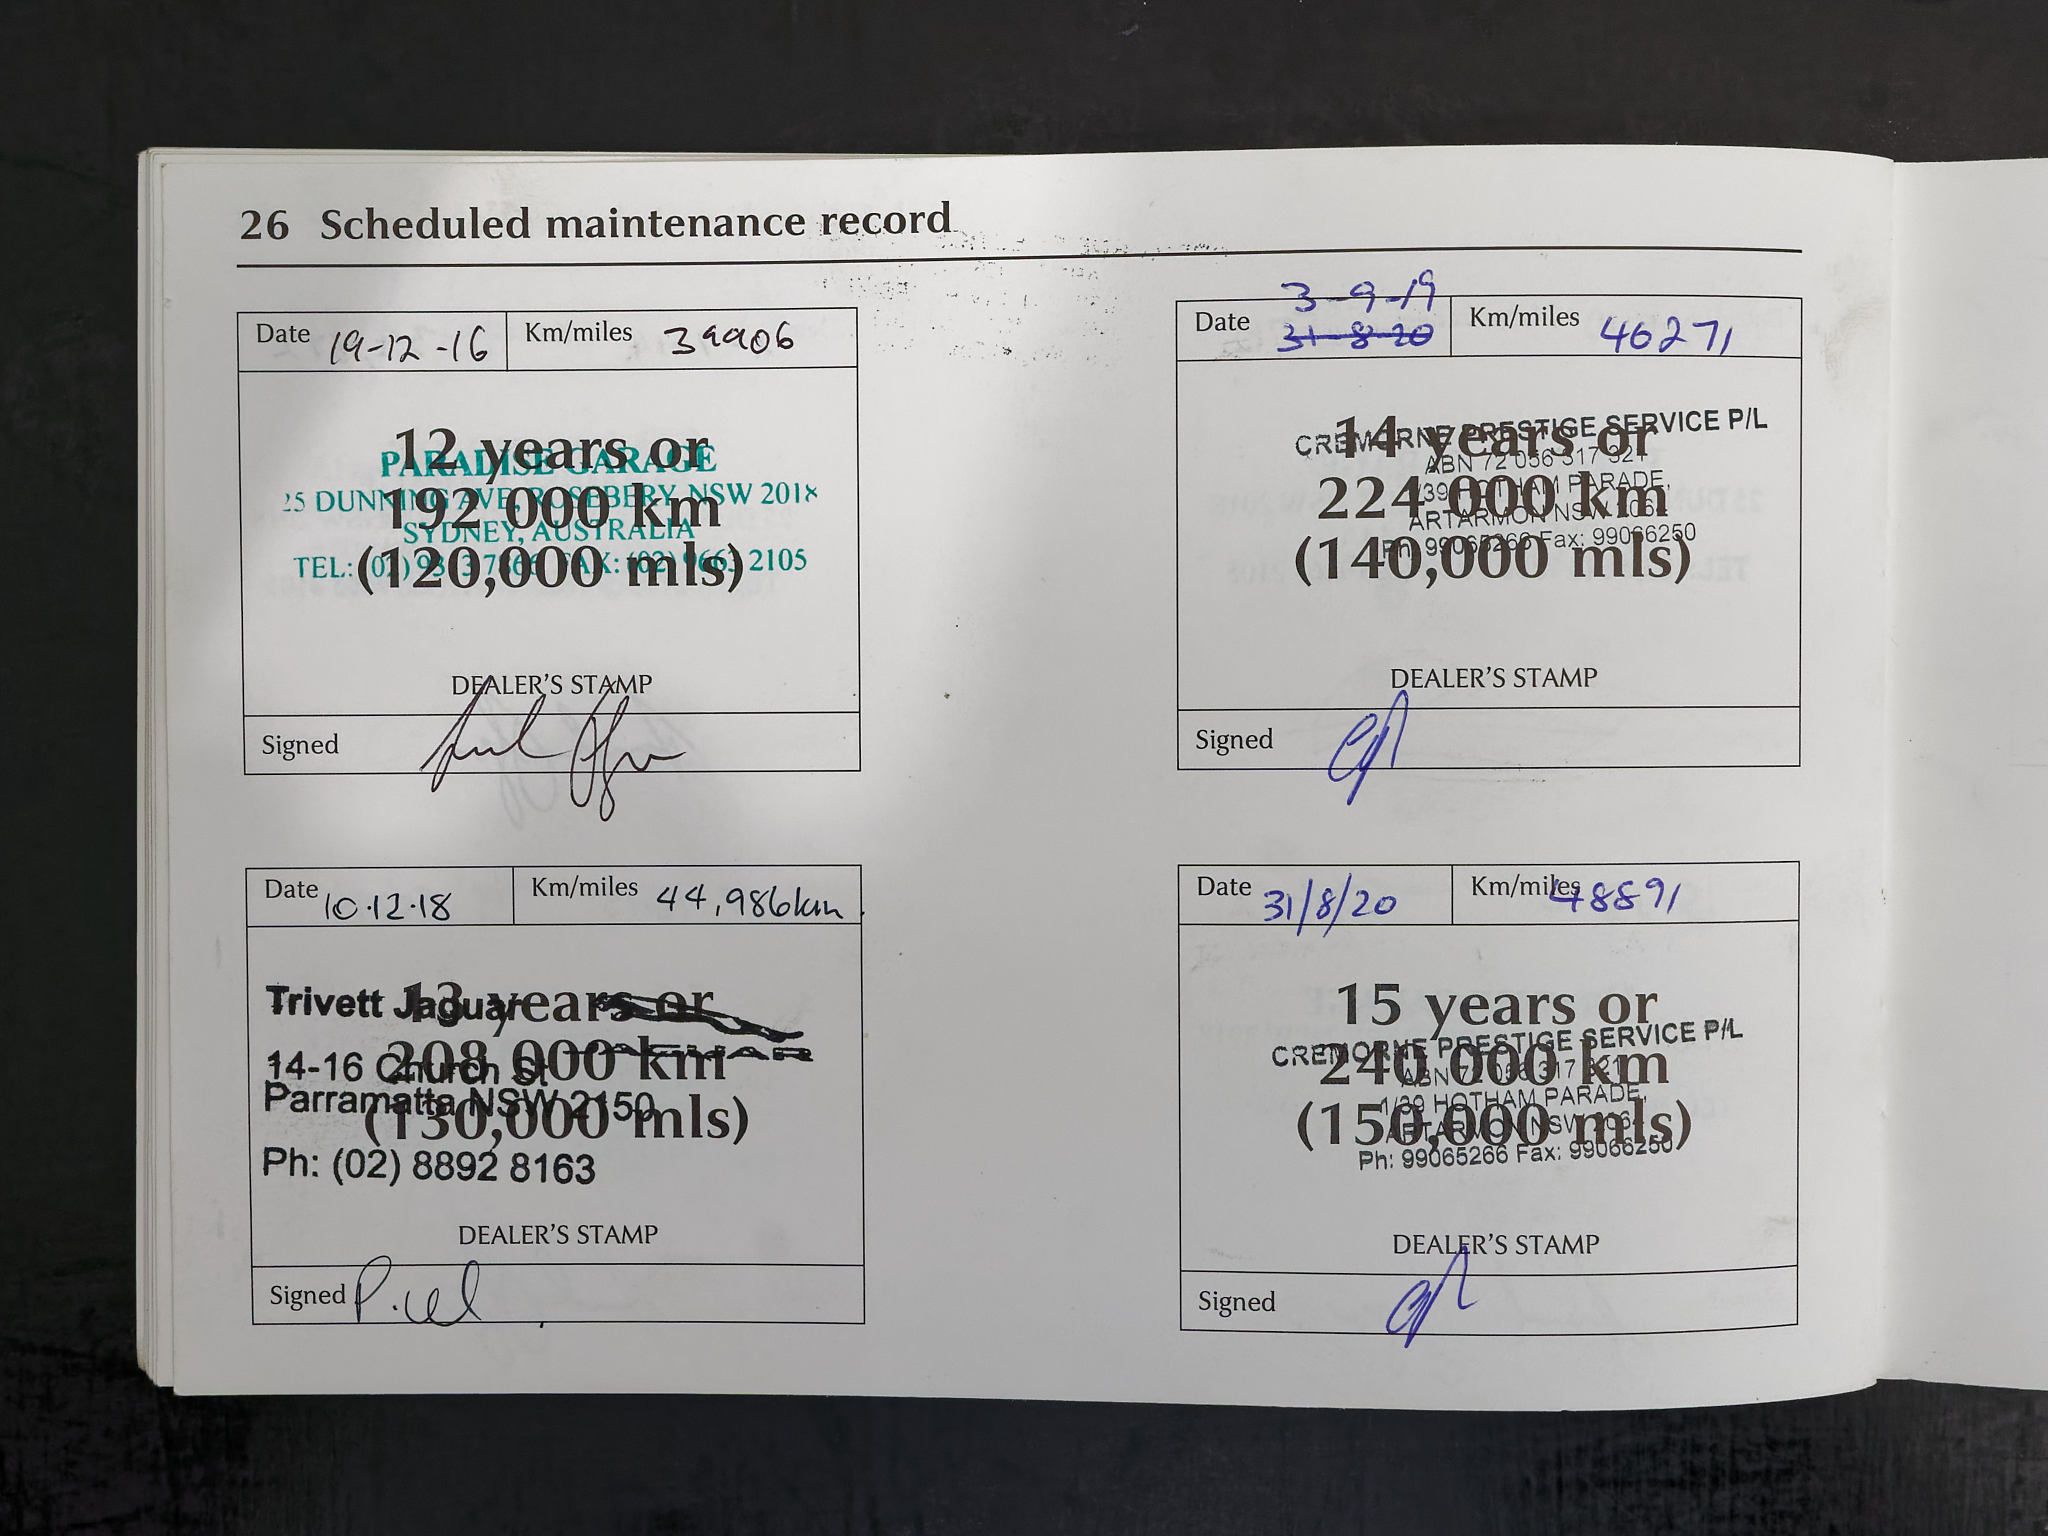 26 Scheduled maintenance record
Date 19-12-16 Km/miles 39906
12 years or
PARADISE GARAGE
25 DUNNING AVE, ROSEBERY, NSW 2018
192 000 km
SYDNEY, AUSTRALIA
TEL: (02) FAX: (02) 9663 2105
(120,000 mls)
DEALER'S STAMP
Signed
Date 10.12.18 Km/miles 44,986km
13 years or
Trivett Jaguar
208 000 km
14-16 Church St
Parramatta NSW 2150
(130,000 mls)
Ph: (02) 8892 8163
DEALER'S STAMP
Signed
3-9-19
Date 31-8-20 Km/miles 46271
14 years or
CREMORNE PRESTIGE SERVICE P/L
ABN 72 056 317 321
1/39 HOTHAM PARADE,
224 000 km
ARTARMON NSW 2064
Ph: 99065266 Fax: 99066250
(140,000 mls)
DEALER'S STAMP
Signed
Date 31/8/20 Km/miles 48891
15 years or
CREMORNE PRESTIGE SERVICE P/L
240 000 km
ABN 72 056 317 321
1/39 HOTHAM PARADE,
(150,000 mls)
ARTARMON NSW 2064
Ph: 99065266 Fax: 99066250
DEALER'S STAMP
Signed